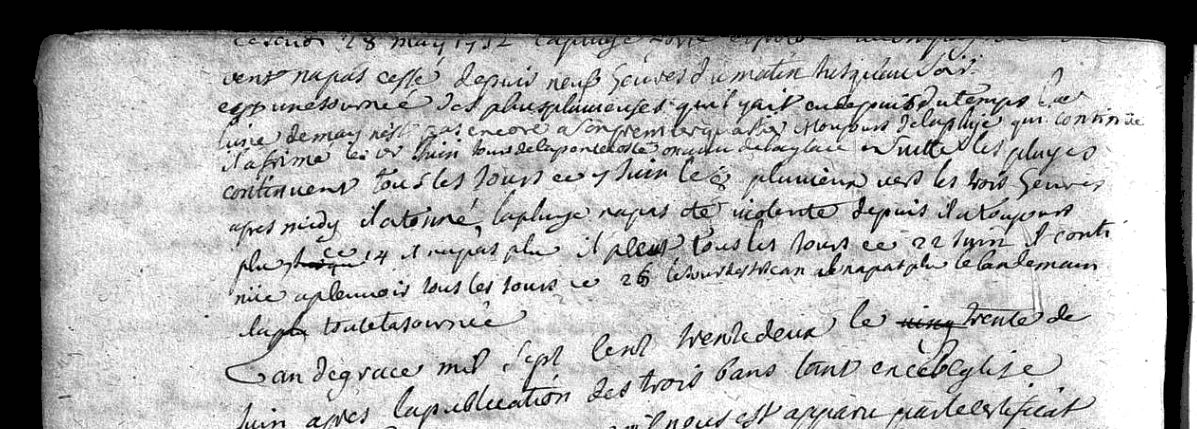 28 may 1732 la pluye
vent na pas cessé depuis neuf heures du matin jusqu'au soir
est une journee des plus pluvieuses qu'il y ait eu depuis du temps la
lune de may n'est pas encore a son premier quartier toujours de la pluye qui continue
il a frimé le 1er juin jour de la pentecoste on a vu de la glace en suitte les pluyes
continuent tous les jours ce 7 juin le 8 pluvieux vers les trois heures
apres midy il a tonné la pluye na pas été violente depuis il a toujours
plu ce 14 il na pas plu il pleut tous les jours ce 22 juin il conti
nüe a pleuvoir tous les jours ce 26 le jour de st jean il na pas plu le landemain
la plu toute la journée
Lan de grace mil sept cent trente deux le trente de
juin apres la publication des trois bans tant en cette eglise
qu'il nous est apparu par le certificat